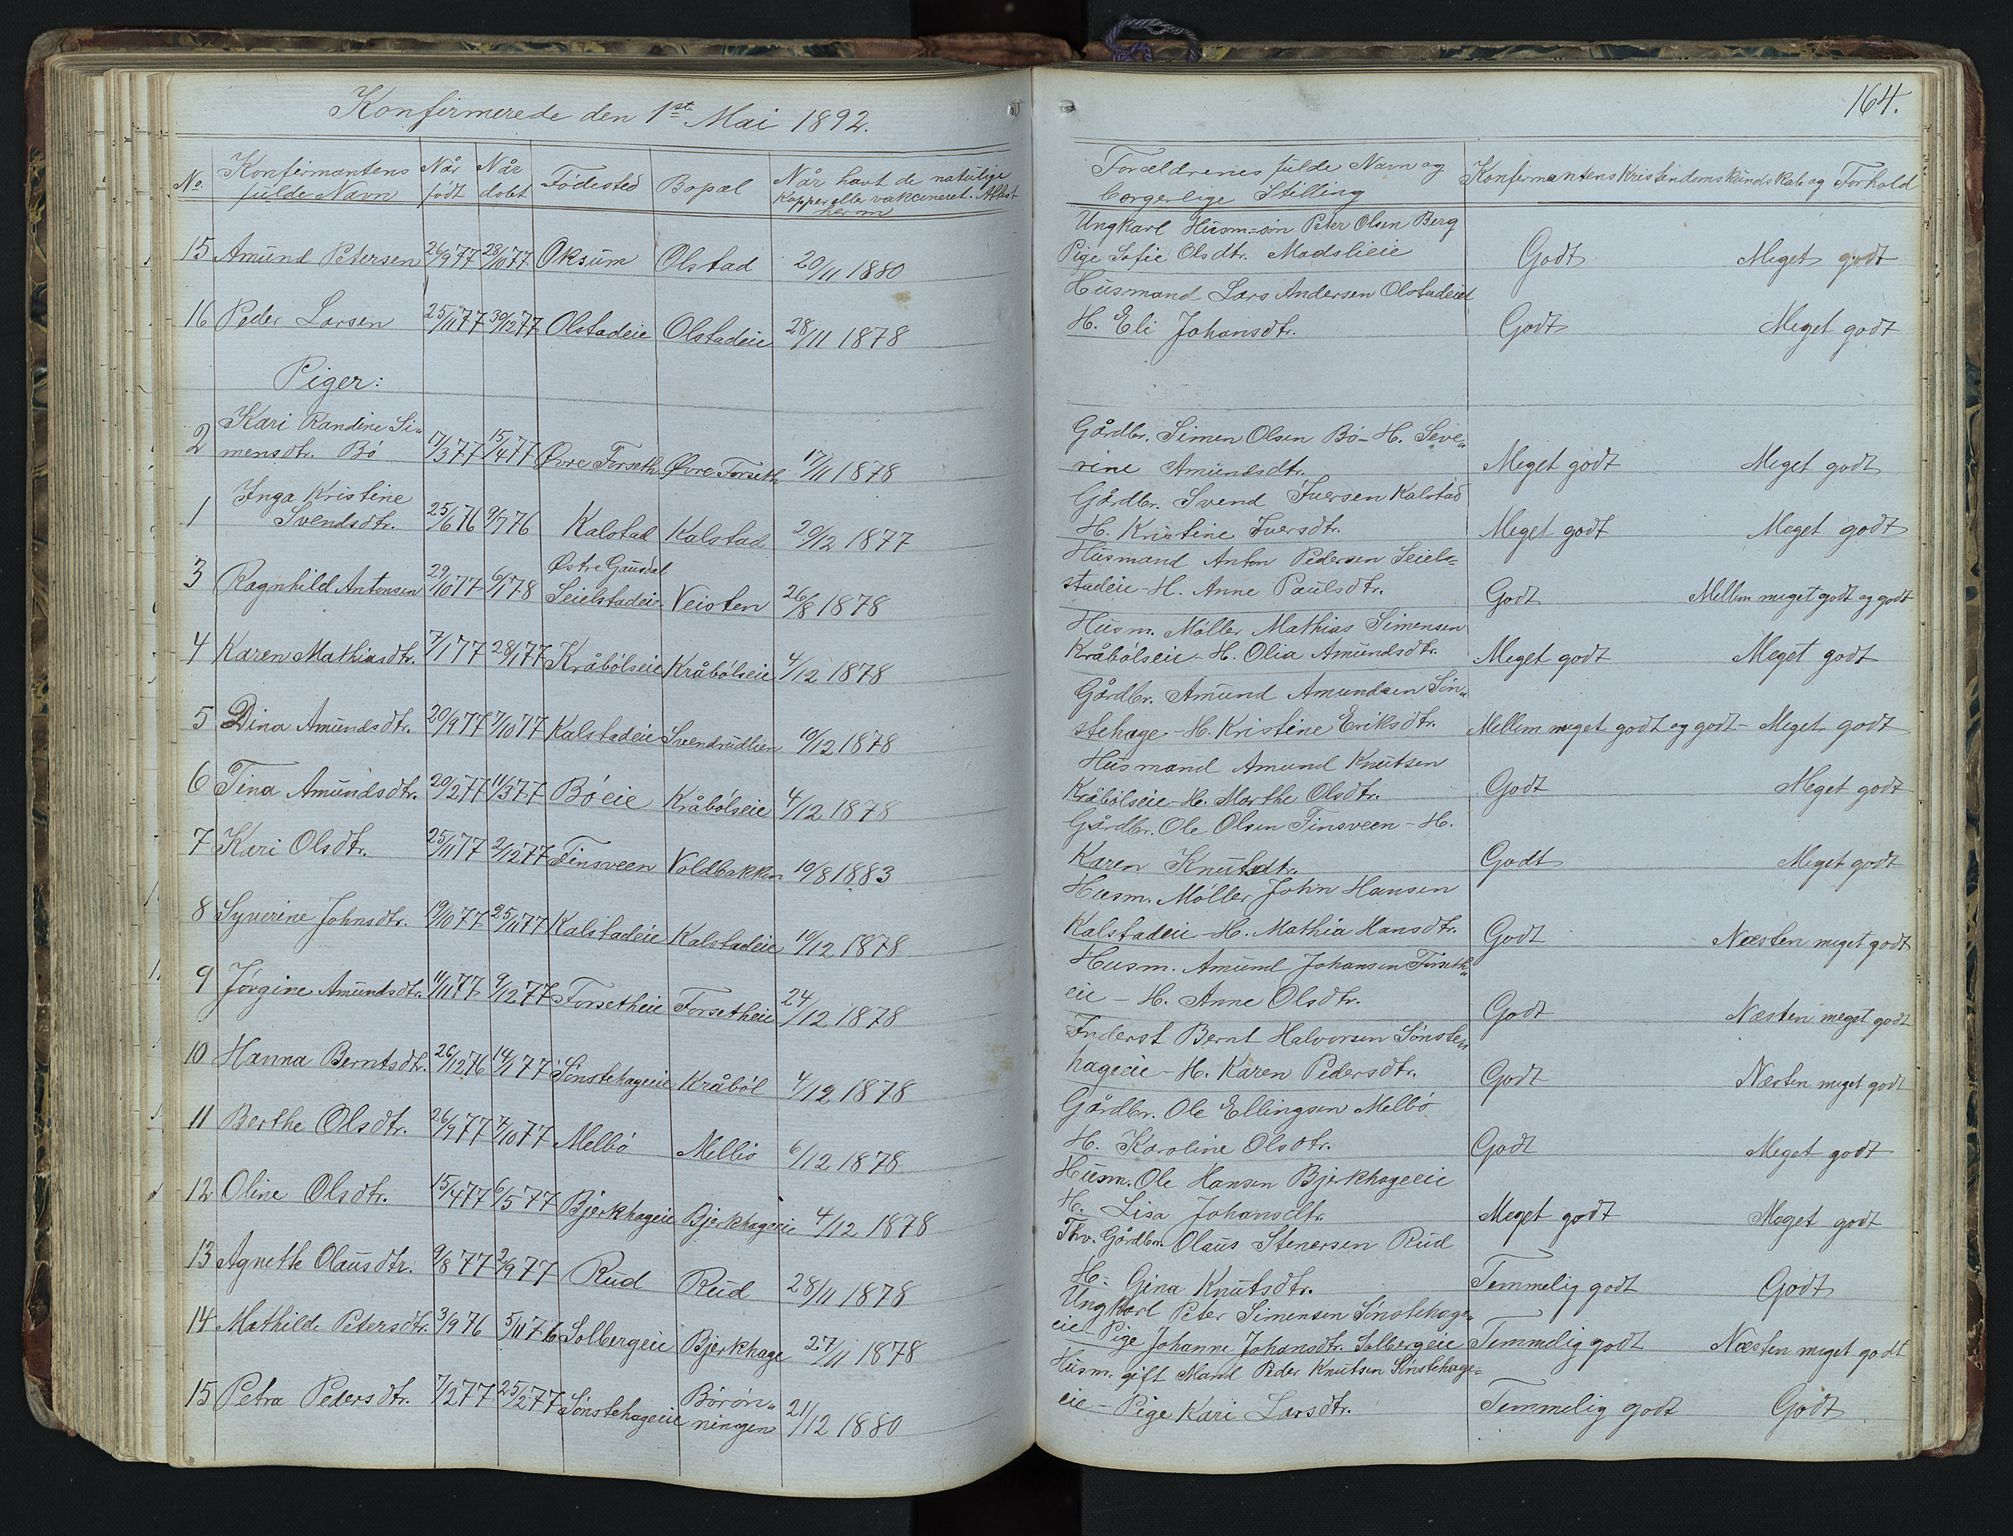 Konfirmerede den 1ste Mai 1892.
164.
No. Konfirmantens fulde Navn Når født Når døbt Fødested Bopæl Når havt de naturlige Kopper eller vakcineret. Attest herom Forældrenes fulde Navn og borgerlige Stilling Konfirmantens Kristendomskundskab og Forhold
Ungkarl Husm.-søn Peter Olsen Berg
15 Amund Petersen 26/9 77 28/10 77 Oksum Olstad 20/11 1880 Pige Sofie Olsdtr. Madslieie Godt Meget godt
Husmand Lars Andersen Olstadeiet
16 Peder Larsen 25/11 77 30/12 77 Olstadeie Olstadeie 28/11 1878 H. Eli Johansdtr. Godt Meget godt
Piger:
Kari Randine Si- Gårdbr. Simen Olsen Bø - H. Seve-
2 mensdtr. Bø 17/3 77 15/4 77 Øvre Forseth Øvre Forseth 17/11 1878 rine Amundsdtr. Meget godt Meget godt
Inga Kristine Gårdbr. Svend Iversen Kalstad
1 Svendsdtr. 25/6 76 9/7 76 Kalstad Kalstad 20/12 1877 H. Kristine Iversdtr. Meget godt Meget godt
Østre Gausdal Husmand Anton Pedersen Seiel-
3 Ragnhild Antonsen 29/10 77 6/1 78 Seielstadeie Veisten 26/8 1878 stadeie - H. Anne Paulsdtr. Godt Mellem meget godt og godt
Husm. Møller Mathias Simensen
4 Karen Mathiasdtr. 7/1 77 28/1 77 Kråbølseie Kråbølseie 4/12 1878 Kråbølseie - H. Olia Amundsdtr. Meget godt Meget godt
Gårdbr. Amund Amundsen Søn-
5 Dina Amundsdtr. 20/9 77 7/10 77 Kalstadeie Svendrudlien 10/12 1878 stehage - H. Kristine Eriksdtr. Mellem meget godt og godt - Meget godt
Husmand Amund Knutsen
6 Tina Amundsdtr. 20/2 77 11/3 77 Bøeie Kråbølseie 4/12 1878 Kråbølseie - H. Marthe Olsdtr. Godt Meget godt
Gårdbr. Ole Olsen Finsveen - H.
7 Kari Olsdtr. 25/11 77 2/12 77 Finsveen Voldbakken 10/8 1883 Karen Knutsdtr. Godt Meget godt
Husm. Møller John Hansen
8 Syverine Johnsdtr. 19/10 77 25/11 77 Kalstadeie Kalstadeie 10/12 1878 Kalstadeie - H. Mathia Hansdtr. Godt Næsten meget godt
Husm. Amund Johansen Forseth-
9 Jørgine Amundsdtr. 11/11 77 9/12 77 Forsetheie Forsetheie 24/12 1878 eie - H. Anne Olsdtr. Godt Næsten meget godt
Inderst Bernt Halvorsen Sønste-
10 Hanna Berntsdtr. 26/12 76 14/1 77 Sønstehageeie Kråbøl 4/12 1878 hageeie - H. Karen Pedersdtr. Godt Næsten meget godt
Gårdbr. Ole Ellingsen Melbø
11 Berthe Olsdtr. 26/9 77 7/10 77 Melbø Melbø 6/12 1878 H. Karoline Olsdtr. Godt Meget godt
Husm. Ole Hansen Bjerkhageeie
12 Oline Olsdtr. 15/4 77 6/5 77 Bjerkhageeie Bjerkhageeie 4/12 1878 H. Lisa Johansdtr. Meget godt Meget godt
Fhv. Gårdbr. Olaus Stenersen Rud
13 Agnethe Olausdtr. 9/8 77 2/9 77 Rud Rud 28/11 1878 H. Gina Knutsdtr. Temmelig godt Godt
Ungkarl Peter Simensen Sønstehage-
14 Mathilde Petersdtr. 3/9 76 5/11 76 Solbergeie Bjerkhage 27/11 1878 eie - Pige Johanne Johansdtr. Solbergeie Temmelig godt Næsten meget godt
Husm. gift Mand Peder Knutsen Sønstehage-
15 Petra Pedersdtr. 7/2 77 25/2 77 Sønstehageeie Børøn- ningen 21/12 1880 eie - Pige Kari Larsdtr. Temmelig godt Godt